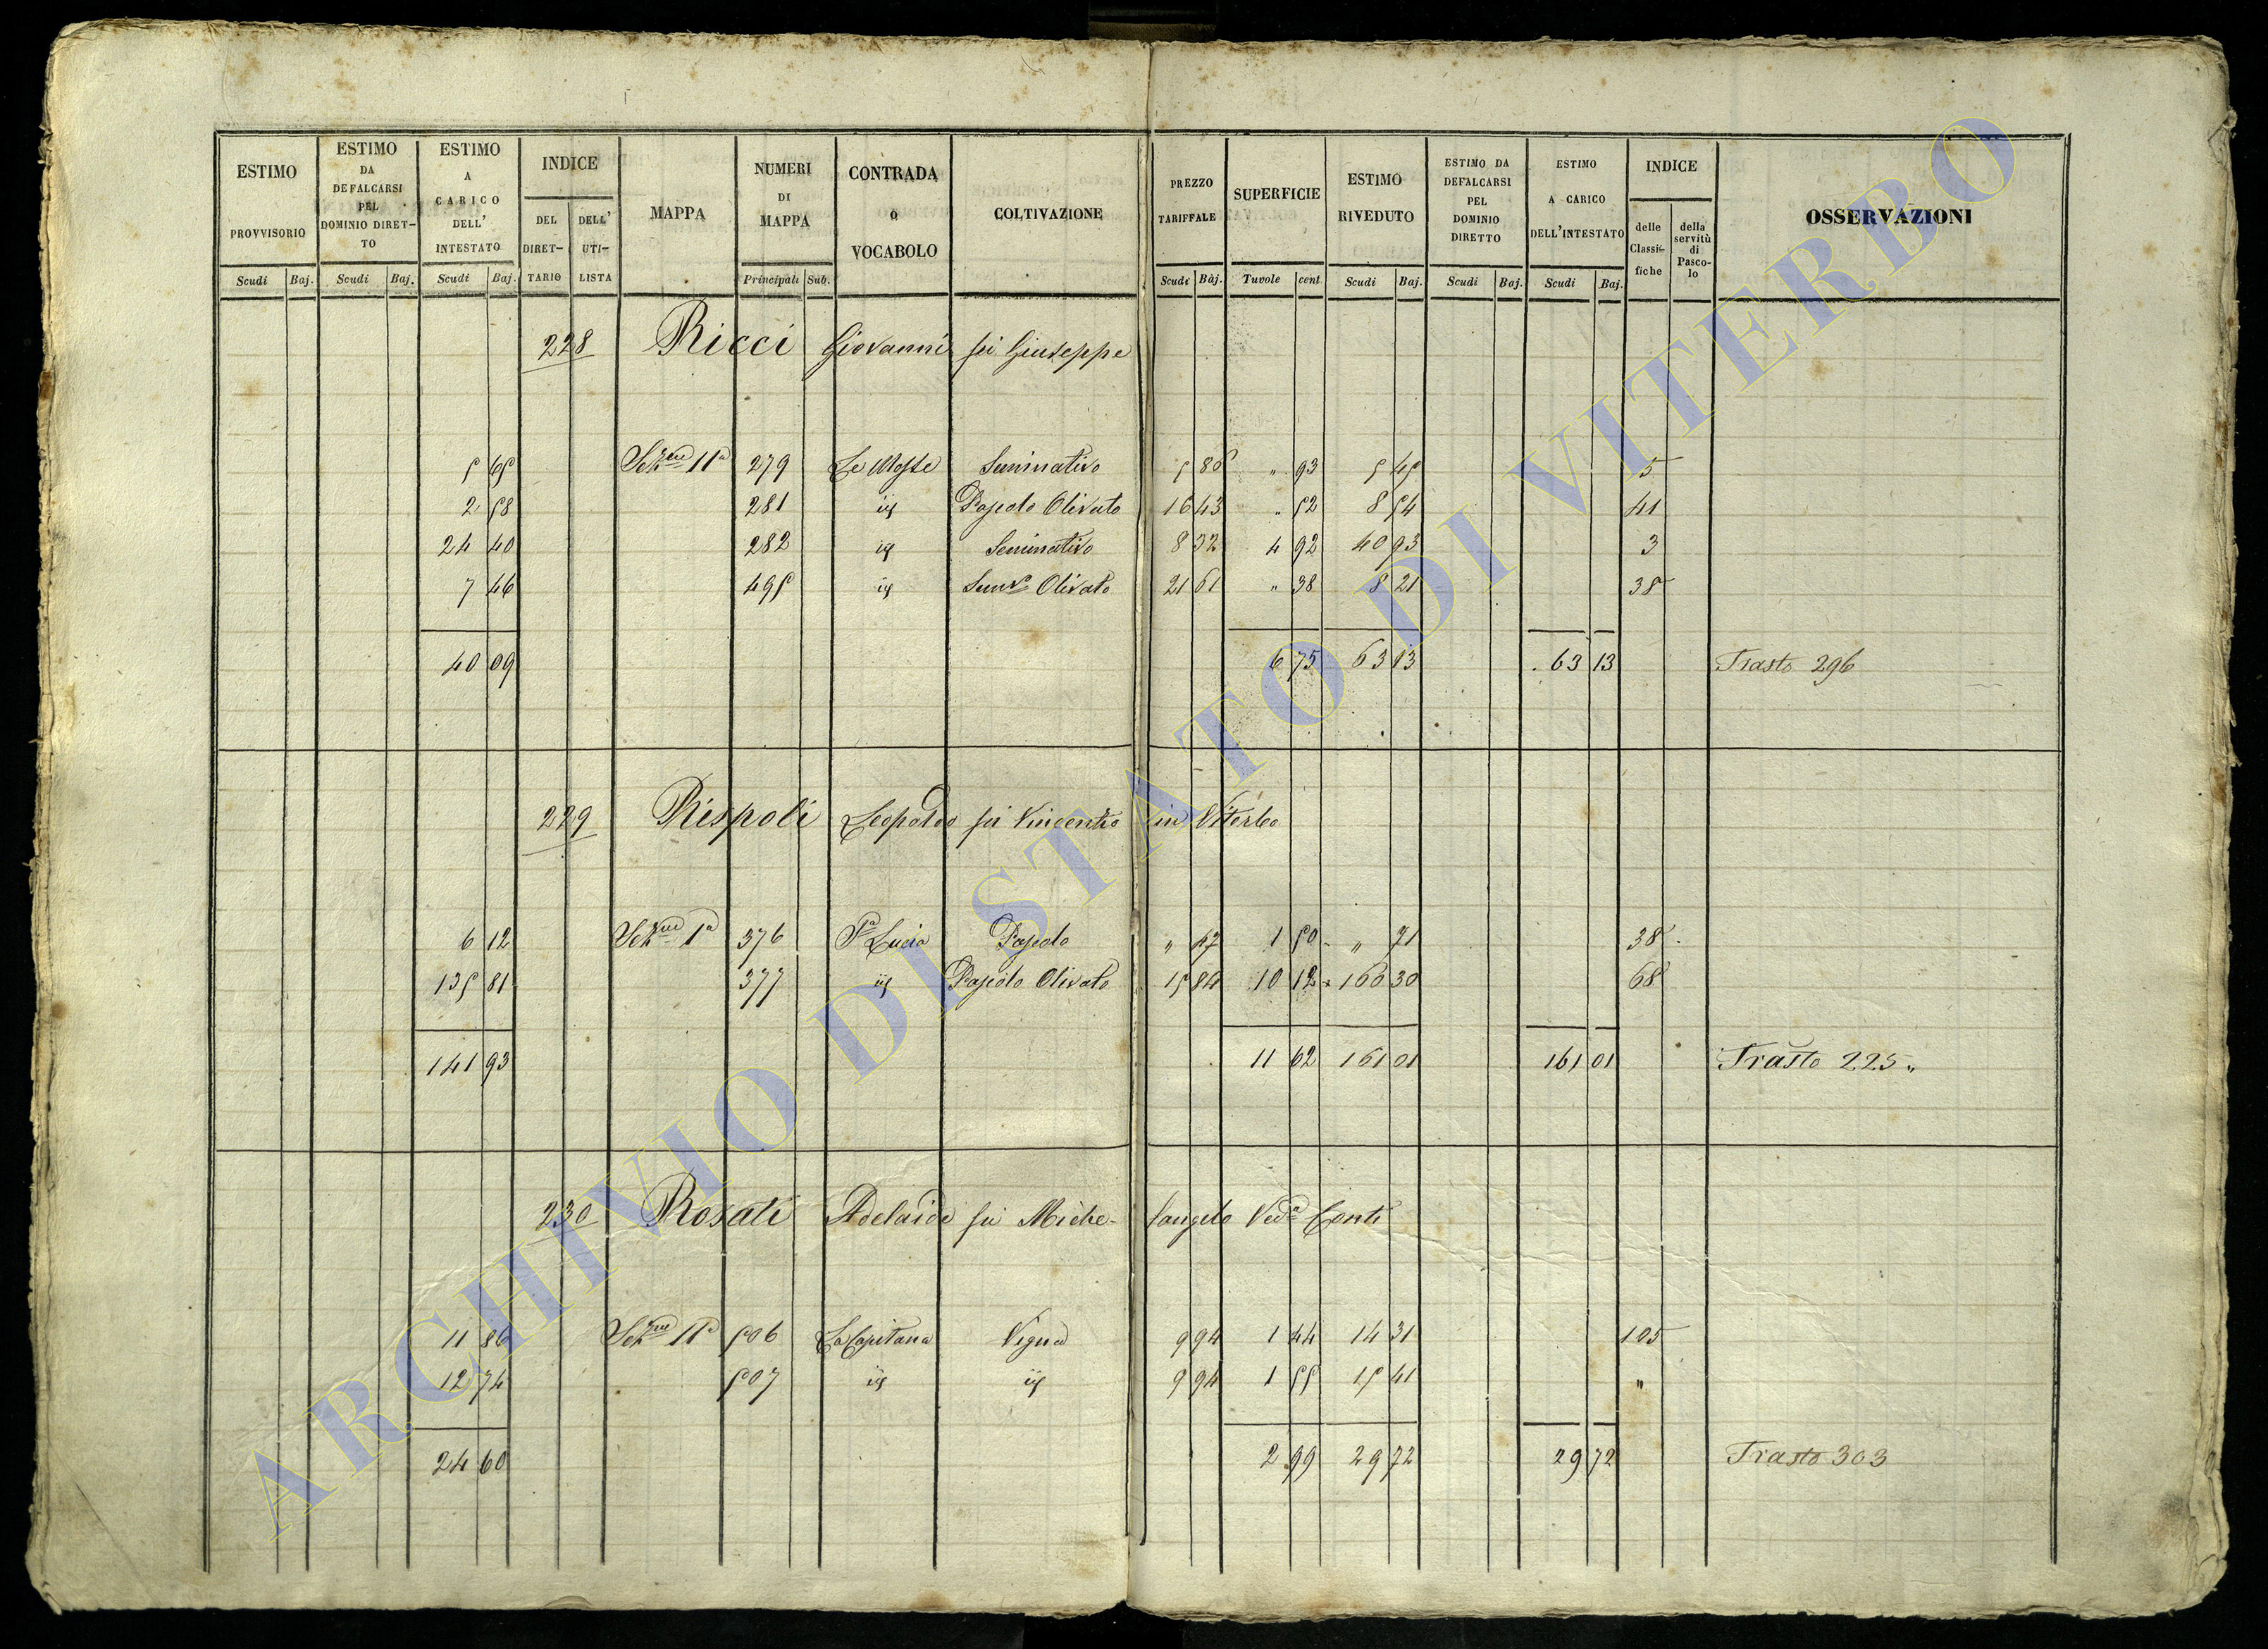 ESTIMO PROVVISORIO
Scudi Baj.
ESTIMO DA DEFALCARSI PEL DOMINIO DIRETTO
Scudi Baj.
ESTIMO A CARICO DELL' INTESTATO
Scudi Baj.
INDICE
DEL DIRETTARIO
DELL' UTILISTA
MAPPA
NUMERI DI MAPPA
Principali Sub.
CONTRADA O VOCABOLO
COLTIVAZIONE
PREZZO TARIFFALE
Scudi Baj.
SUPERFICIE
Tavole cent
ESTIMO RIVEDUTO
Scudi Baj.
ESTIMO DA DEFALCARSI PEL DOMINIO DIRETTO
Scudi Baj.
ESTIMO A CARICO DELL'INTESTATO
Scudi Baj.
INDICE
delle Classifiche
della servitù di Pascolo
OSSERVAZIONI
228 Ricci Giovanni fu Giuseppe
5 65 Sezne IIa 279 Le Mosse Seminativo 5 86 " 93 5 45 5
2 58 281 id Pascolo Olivato 16 43 " 52 8 54 41
24 40 282 id Seminativo 8 32 4 92 40 93 3
7 46 495 id Semvo Olivato 21 61 " 38 8 21 38
40 09 6 75 63 13 63 13 Trasto 296
229 Rispoli Leopoldo fu Vincenzo in Viterbo
6 12 Sezne Ia 376 Sa Lucia Pascolo " 47 1 50 " 71 38
135 81 377 id Pascolo Olivato 15 84 10 12 160 30 68
141 93 11 62 161 01 161 01 Trasto 225 "
230 Rosati Adelaide fu Miche- langelo Veda Conti
11 86 Sezne IIa 506 La Capitana Vigna 9 94 1 44 14 31 105
12 74 507 id id 9 94 1 55 15 41 "
24 60 2 99 29 72 29 72 Trasto 303
ARCHIVIO DI STATO DI VITERBO